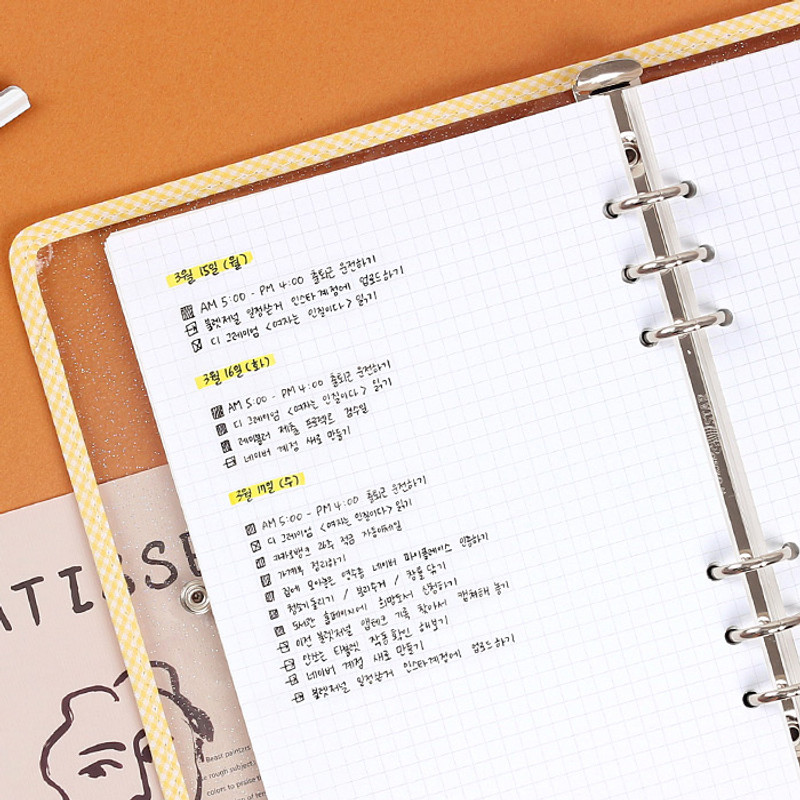 3월 15일 (월)
AM 5:00 - PM 4:00 출퇴근 운전하기
불렛저널 일정한거 인스타계정에 업로드하기
디 그레이엄 <여자는 인질이다> 읽기
3월 16일 (화)
AM 5:00 - PM 4:00 출퇴근 운전하기
디 그레이엄 <여자는 인질이다> 읽기
레이블러 제출 프로젝트 검수일
네이버 계정 새로 만들기
3월 17일 (수)
AM 5:00 - PM 4:00 출퇴근 운전하기
디 그레이엄 <여자는 인질이다> 읽기
카카오뱅크 26주 적금 자동이체일
가계부 정리하기
집에 모아놓은 영수증 네이버 마이플레이스 인증하기
청소기돌리기 / 분리수거 / 창틀 닦기
도서관 홈페이지에 희망도서 신청하기
이전 불렛저널 앱테크 기록 찾아서 캡쳐해 놓기
안쓰는 타블렛 작동확인 해보기
네이버 계정 새로 만들기
불렛저널 일정한거 인스타계정에 업로드하기
ATISSE
Beast painters
rough subject
colors to praise